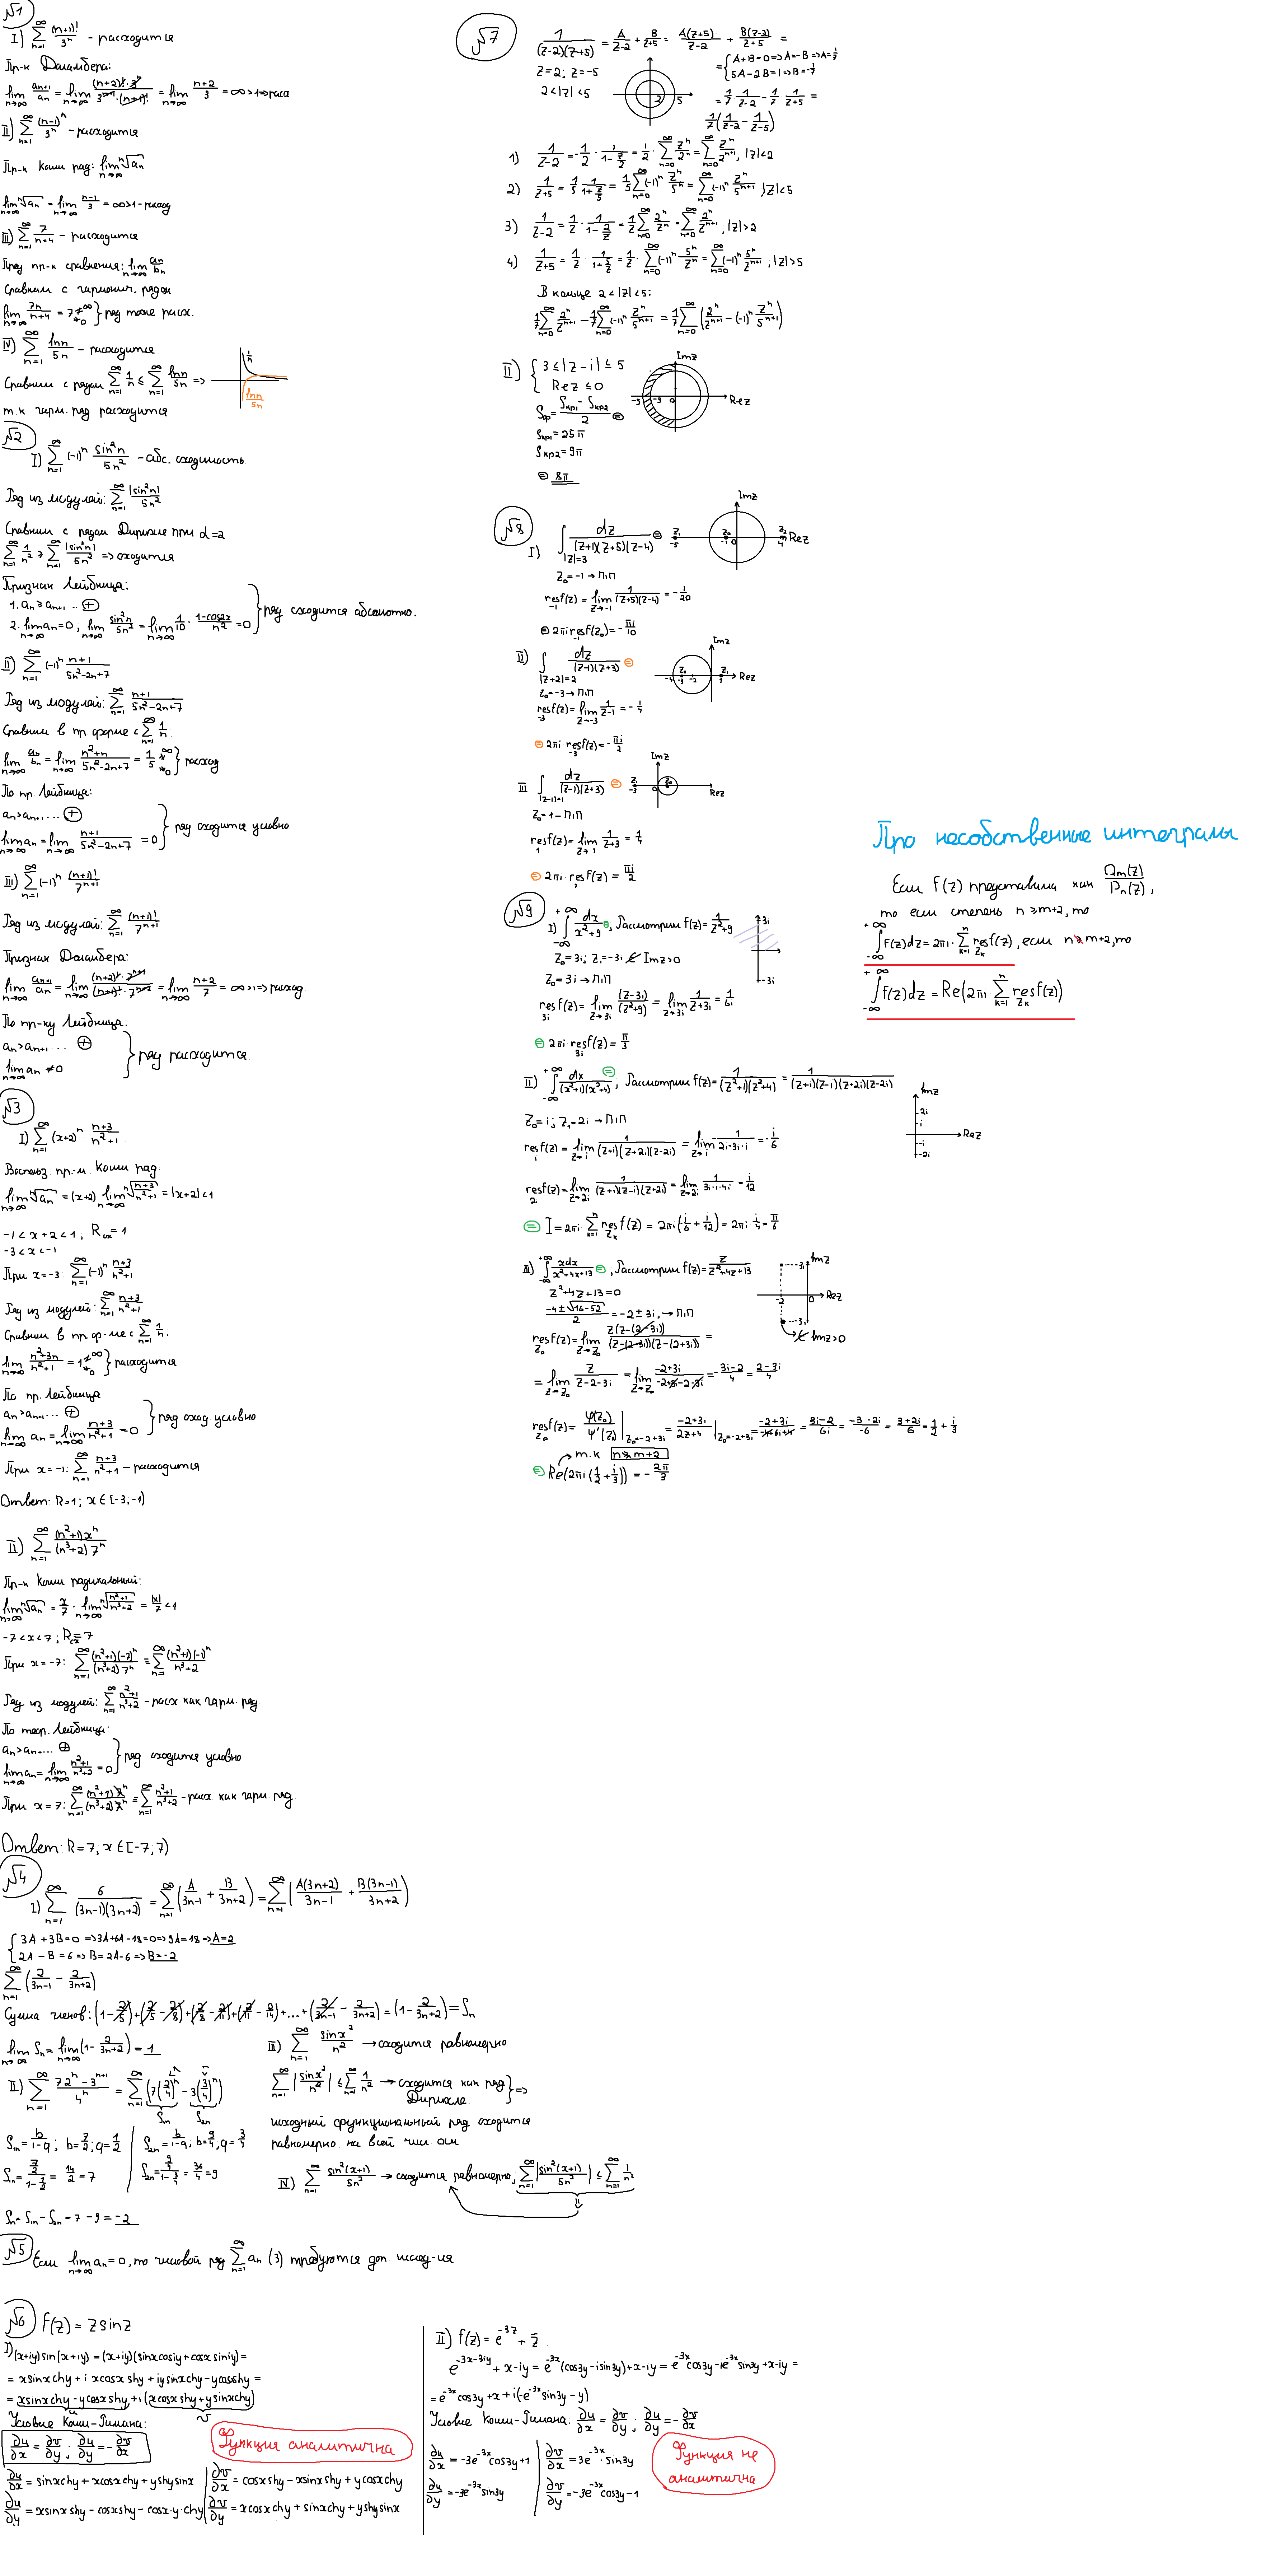 №1
I) ∑_{n=1}^{∞} (n+1)!/3^n - расходится
Пр-к Даламбера:
lim_{n→∞} a_{n+1}/a_n = lim_{n→∞} (n+2)!·3^n/(3^{n+1}·(n+1)!) = lim_{n→∞} (n+2)/3 = ∞ > 1 ⇒ расх
II) ∑_{n=1}^{∞} (n-1)^n/3^n - расходится
Пр-к Коши рад: lim_{n→∞} ⁿ√a_n
lim_{n→∞} ⁿ√a_n = lim_{n→∞} (n-1)/3 = ∞ > 1 - расход
III) ∑_{n=1}^{∞} 7/(n+4) - расходится
Пред. пр-к сравнения: lim_{n→∞} a_n/b_n
Сравним с гармонич. рядом
lim_{n→∞} 7n/(n+4) = 7 ≠∞ ≠0 } ряд тоже расх.
IV) ∑_{n=1}^{∞} lnn/5n - расходится
Сравним с рядом ∑_{n=1}^{∞} 1/n ≤ ∑_{n=1}^{∞} lnn/5n =>
1/n
lnn/5n
т.к гарм. ряд расходится
№2
I) ∑_{n=1}^{∞} (-1)^n sin²n/5n² - абс. сходимость
Ряд из модулей: ∑_{n=1}^{∞} |sin²n|/5n²
Сравним с рядом Дирихле при α=2
∑_{n=1}^{∞} 1/n² ≥ ∑_{n=1}^{∞} |sin²n|/5n² => сходится
Признак Лейбница:
1. a_n ≥ a_{n+1} ... ⊕
2. lim_{n→∞} a_n = 0; lim_{n→∞} sin²n/5n² = lim_{n→∞} 1/10 · (1-cos2x)/n² = 0 } ряд сходится абсолютно.
II) ∑_{n=1}^{∞} (-1)^n (n+1)/(5n²-2n+7)
Ряд из модулей: ∑_{n=1}^{∞} (n+1)/(5n²-2n+7)
Сравним в пр. форме с ∑_{n=1}^{∞} 1/n
lim_{n→∞} a_n/b_n = lim_{n→∞} (n²+n)/(5n²-2n+7) = 1/5 ≠∞ ≠0 } расход
По пр. Лейбница:
a_n > a_{n+1} ... ⊕
lim_{n→∞} a_n = lim_{n→∞} (n+1)/(5n²-2n+7) = 0 } ряд сходится условно
III) ∑_{n=1}^{∞} (-1)^n (n+1)!/7^{n+1}
Ряд из модулей: ∑_{n=1}^{∞} (n+1)!/7^{n+1}
Признак Даламбера:
lim_{n→∞} a_{n+1}/a_n = lim_{n→∞} (n+2)!·7^{n+1}/((n+1)!·7^{n+2}) = lim_{n→∞} (n+2)/7 = ∞ > 1 => расход
По пр-ку Лейбница:
a_n > a_{n+1} ... ⊕
lim_{n→∞} a_n ≠ 0 } ряд расходится
№3
I) ∑_{n=1}^{∞} (x+2)^n (n+3)/(n²+1)
Воспольз. пр-м Коши рад
lim_{n→∞} ⁿ√a_n = (x+2) lim_{n→∞} ⁿ√((n+3)/(n²+1)) = |x+2| < 1
-1 < x+2 < 1; R_{сх} = 1
-3 < x < -1
При x = -3: ∑_{n=1}^{∞} (-1)^n (n+3)/(n²+1)
Ряд из модулей: ∑_{n=1}^{∞} (n+3)/(n²+1)
Сравним в пр ф-ме с ∑_{n=1}^{∞} 1/n.
lim_{n→∞} (n²+3n)/(n²+1) = 1 ≠∞ ≠0 } расходится
По пр. Лейбница
a_n > a_{n+1} ... ⊕
lim_{n→∞} a_n = lim_{n→∞} (n+3)/(n²+1) = 0 } ряд сход условно
При x = -1: ∑_{n=1}^{∞} (n+3)/(n²+1) - расходится
Ответ: R=1; x ∈ [-3;-1)
II) ∑_{n=1}^{∞} (n²+1)x^n/((n³+2)7^n)
Пр-к Коши радикальный:
lim_{n→∞} ⁿ√a_n = x/7 · lim_{n→∞} ⁿ√((n²+1)/(n³+2)) = |x|/7 < 1
-7 < x < 7; R_{сх} = 7
При x = -7: ∑_{n=1}^{∞} (n²+1)(-7)^n/((n³+2)7^n) = ∑_{n=1}^{∞} (n²+1)(-1)^n/(n³+2)
Ряд из модулей: ∑_{n=1}^{∞} (n²+1)/(n³+2) - расх как гарм. ряд
По теор. Лейбница:
a_n > a_{n+1}... ⊕
lim_{n→∞} a_n = lim_{n→∞} (n²+1)/(n³+2) = 0 } ряд сходится условно
При x = 7: ∑_{n=1}^{∞} (n²+1)7^n/((n³+2)7^n) = ∑_{n=1}^{∞} (n²+1)/(n³+2) - расх. как гарм. ряд
Ответ: R=7; x ∈ [-7;7)
№4
I) ∑_{n=1}^{∞} 6/((3n-1)(3n+2)) = ∑_{n=1}^{∞} (A/(3n-1) + B/(3n+2)) = ∑_{n=1}^{∞} (A(3n+2)/(3n-1) + B(3n-1)/(3n+2))
{ 3A+3B=0 => 3A+6A-18=0 => 9A=18 => A=2
2A-B=6 => B=2A-6 => B=-2
∑_{n=1}^{∞} (2/(3n-1) - 2/(3n+2))
Сумма членов: (1-2/5)+(2/5-2/8)+(2/8-2/11)+(2/11-2/14)+...+(2/(3n-1)-2/(3n+2)) = (1-2/(3n+2)) = S_n
lim_{n→∞} S_n = lim_{n→∞} (1-2/(3n+2)) = 1
II) ∑_{n=1}^{∞} (7·2^n-3^{n+1})/4^n = ∑_{n=1}^{∞} (7(2/4)^n - 3(3/4)^n)
S_{1n} S_{2n}
S_{1n} = b/(1-q); b=7/2; q=1/2 | S_{2n} = b/(1-q); b=9/4, q=3/4
S_{1n} = (7/2)/(1-1/2) = 14/2 = 7 | S_{2n} = (9/4)/(1-3/4) = 36/4 = 9
S_n = S_{1n} - S_{2n} = 7-9 = -2
III) ∑_{n=1}^{∞} sinx²/n² → сходится равномерно
∑_{n=1}^{∞} |sinx²/n²| ≤ ∑_{n=1}^{∞} 1/n² → сходится как ряд Дирихле } =>
исходный функциональный ряд сходится
равномерно на всей чис. оси
IV) ∑_{n=1}^{∞} sin²(x+1)/5n² → сходится равномерно, ∑_{n=1}^{∞} |sin²(x+1)/5n²| ≤ ∑_{n=1}^{∞} 1/n²
№5
Если lim_{n→∞} a_n = 0, то числовой ряд ∑_{n=1}^{∞} a_n (3) требуются доп. исслед-ия
№6 f(z) = z sinz
I) (x+iy)sin(x+iy) = (x+iy)(sinxcosiy+cosxsiniy) =
= xsinxchy + i xcosxshy + iysinxchy - ycosxshy =
= xsinxchy - ycosxshy + i(xcosxshy + ysinxchy)
u v
Условие Коши-Римана:
∂u/∂x = ∂v/∂y; ∂u/∂y = -∂v/∂x
Функция аналитична
∂u/∂x = sinxchy + xcosxchy + yshysinx | ∂v/∂x = cosxshy - xsinxshy + ycosxchy
∂u/∂y = xsinxshy - cosxshy - cosx·y·chy | ∂v/∂y = xcosxchy + sinxchy + yshysinx
II) f(z) = e^{-3z} + z̄
e^{-3x-3iy} + x-iy = e^{-3x}(cos3y-isin3y)+x-iy = e^{-3x}cos3y-ie^{-3x}sin3y+x-iy =
= e^{-3x}cos3y+x+i(-e^{-3x}sin3y-y)
Условие Коши-Римана: ∂u/∂x = ∂v/∂y; ∂u/∂y = -∂v/∂x
∂u/∂x = -3e^{-3x}cos3y+1 | ∂v/∂x = 3e^{-3x}·sin3y
∂u/∂y = -3e^{-3x}sin3y | ∂v/∂y = -3e^{-3x}cos3y-1
Функция не
аналитична
№7
1/((z-2)(z+5)) = A/(z-2) + B/(z+5) = A(z+5)/(z-2) + B(z-2)/(z+5) =
z=2; z=-5
2<|z|<5
2 5
= { A+B=0 => A=-B => A=1/7
5A-2B=1 => B=-1/7
= 1/7 · 1/(z-2) - 1/7 · 1/(z+5) =
1/7(1/(z-2) - 1/(z-5))
1) 1/(z-2) = -1/2 · 1/(1-z/2) = 1/2 · ∑_{n=0}^{∞} z^n/2^n = ∑_{n=0}^{∞} z^n/2^{n+1}, |z|<2
2) 1/(z+5) = 1/5 · 1/(1+z/5) = 1/5 ∑_{n=0}^{∞} (-1)^n z^n/5^n = ∑_{n=0}^{∞} (-1)^n z^n/5^{n+1}, |z|<5
3) 1/(z-2) = 1/z · 1/(1-2/z) = 1/z ∑_{n=0}^{∞} 2^n/z^n = ∑_{n=0}^{∞} 2^n/z^{n+1}, |z|>2
4) 1/(z+5) = 1/z · 1/(1+5/z) = 1/z · ∑_{n=0}^{∞} (-1)^n 5^n/z^n = ∑_{n=0}^{∞} (-1)^n 5^n/z^{n+1}, |z|>5
В кольце 2<|z|<5:
1/7 ∑_{n=0}^{∞} 2^n/z^{n+1} - 1/7 ∑_{n=0}^{∞} (-1)^n z^n/5^{n+1} = 1/7 ∑_{n=0}^{∞} (2^n/z^{n+1} - (-1)^n z^n/5^{n+1})
II) { 3≤|z-i|≤5
Rez≤0
Imz
-5 -3 0 Rez
S_{ф} = (S_{кр1} - S_{кр2})/2 =
S_{кр1} = 25π
S_{кр2} = 9π
= 8π
№8
I) ∫_{|z|=3} dz/((z+1)(z+5)(z-4)) =
Imz
z₁ -5 z₀ -1 0 z₂ 4 Rez
z₀=-1 → П1П
res_{-1} f(z) = lim_{z→-1} 1/((z+5)(z-4)) = -1/20
= 2πi res_{-1} f(z₀) = -πi/10
II) ∫_{|z+2|=2} dz/((z-1)(z+3)) =
Imz
-4 z₀ -3 -2 z₁ 1 Rez
z₀=-3 → П1П
res_{-3} f(z) = lim_{z→-3} 1/(z-1) = -1/4
= 2πi·res_{-3} f(z) = -πi/2
III ∫_{|z-1|=1} dz/((z-1)(z+3)) =
Imz
z₁ -3 0 z₀ Rez
z₀=1 - П1П
res_{1} f(z) = lim_{z→1} 1/(z+3) = 1/4
= 2πi·res_{1} f(z) = πi/2
№9
I) ∫_{-∞}^{+∞} dx/(x²+9) =, Рассмотрим f(z) = 1/(z²+9)
3i
-3i
z₀=3i; z₁=-3i ∉ Imz>0
z₀=3i → П1П
res_{3i} f(z) = lim_{z→3i} (z-3i)/(z²+9) = lim_{z→3i} 1/(z+3i) = 1/6i
= 2πi·res_{3i} f(z) = π/3
II) ∫_{-∞}^{+∞} dx/((x²+1)(x²+4)) =; Рассмотрим f(z) = 1/((z²+1)(z²+4)) = 1/((z+i)(z-i)(z+2i)(z-2i))
Imz
2i
i
Rez
-i
-2i
z₀=i; z₁=2i → П1П
res_{i} f(z) = lim_{z→i} 1/((z+i)(z+2i)(z-2i)) = lim_{z→i} -1/(2i·3i·i) = -i/6
res_{2i} f(z) = lim_{z→2i} 1/((z+i)(z-i)(z+2i)) = lim_{z→2i} 1/(3i·i·4i) = i/12
= I = 2πi ∑_{k=1}^{n} res_{z_k} f(z) = 2πi(i/6+i/12) = 2πi·i/4 = π/6
III) ∫_{-∞}^{+∞} xdx/(x²+4x+13) =, Рассмотрим f(z) = z/(z²+4z+13)
Imz
3i
-2 0 Rez
-3i
∉ Imz>0
z²+4z+13=0
(-4±√(16-52))/2 = -2±3i, → П1П
res_{z₀} f(z) = lim_{z→z₀} z(z-(2-3i))/((z-(2-3i))(z-(2+3i))) =
= lim_{z→z₀} z/(z-2-3i) = lim_{z→z₀} (-2+3i)/(-2+3i-2-3i) = -(3i-2)/4 = (2-3i)/4
res_{z₀} f(z) = φ(z₀)/ψ'(z₀) |_{z₀=-2+3i} = (-2+3i)/(2z+4) |_{z₀=-2+3i} = (-2+3i)/(-4+6i+4) = (3i-2)/6i = (-3-2i)/-6 = (3+2i)/6 = 1/2 + i/3
т.к n≱m+2
= Re(2πi(1/2+i/3)) = -2π/3
Про несобственные интегралы
Если f(z) представима как Q_m(z)/P_n(z),
то если степень n≥m+2, то
∫_{-∞}^{+∞} f(z)dz = 2πi·∑_{k=1}^{n} res_{z_k} f(z), если n≱m+2, то
∫_{-∞}^{+∞} f(z)dz = Re(2πi·∑_{k=1}^{n} res_{z_k} f(z))